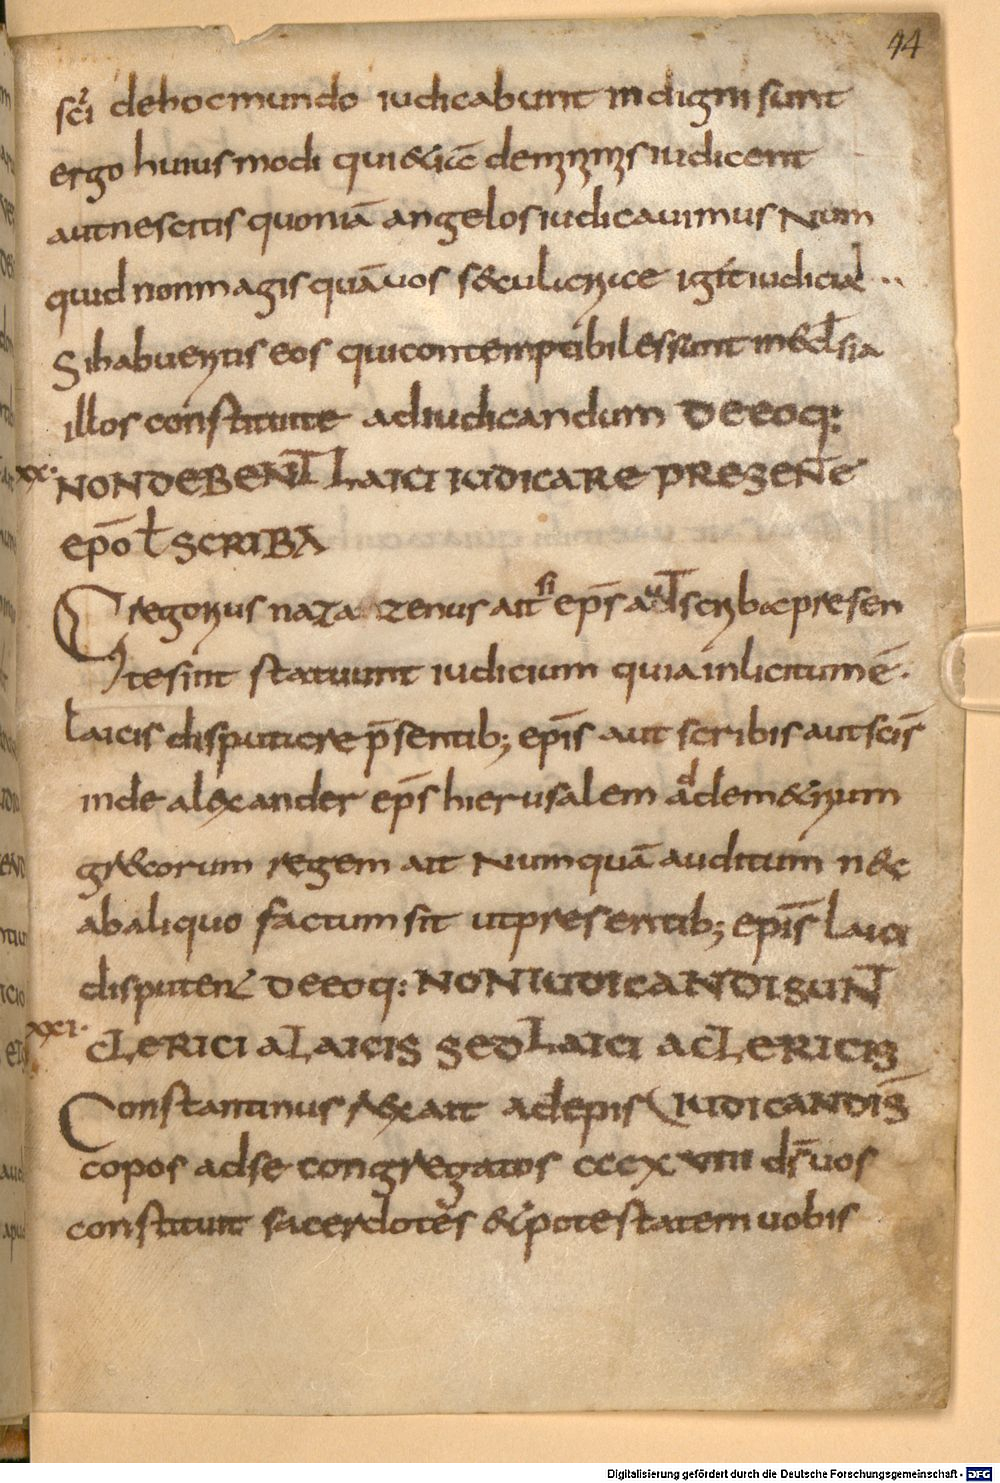 44
sc̄i dehocmundo iudicabunt indigni sunt
ergo huiusmodi qui &iā deminimis iudicent
autnescitis quoniā angelosiudicavimus Num
quid nonmagis quāvos seculi iudicia
Sihabueritis eos quicontemptibilessunt in&clsia
illos constituite adiudicandum DEEOq:
xx· NONDEBENT LAICI IUDICARE PRESENTE
epōƚ SCRIBA
Gregorius nazanzenus ait si ep̄s aut scriba presen
tesint statuunt iudicium quiainlicitumē·
Laicis disputare p̄sentib; ep̄is aut scribis autscīs
inde alexander ep̄s hierusalem addem&rium
grecorum regem ait Numquā auditum nec
abaliquo factumsit utpresentib; ep̄is laici
disputent DEEOq: NONIUDICANDISUNT
xxi· CLERICI ALAICIS SEDLAICI ACLERICIS
Constantinus rex ait adepis IUDICANDIS̄
copos adse congregatos cccxviii d̄svos
constituit sacerdotes & potestatemvobis
Digitalisierung gefördert durch die Deutsche Forschungsgemeinschaft - DFG